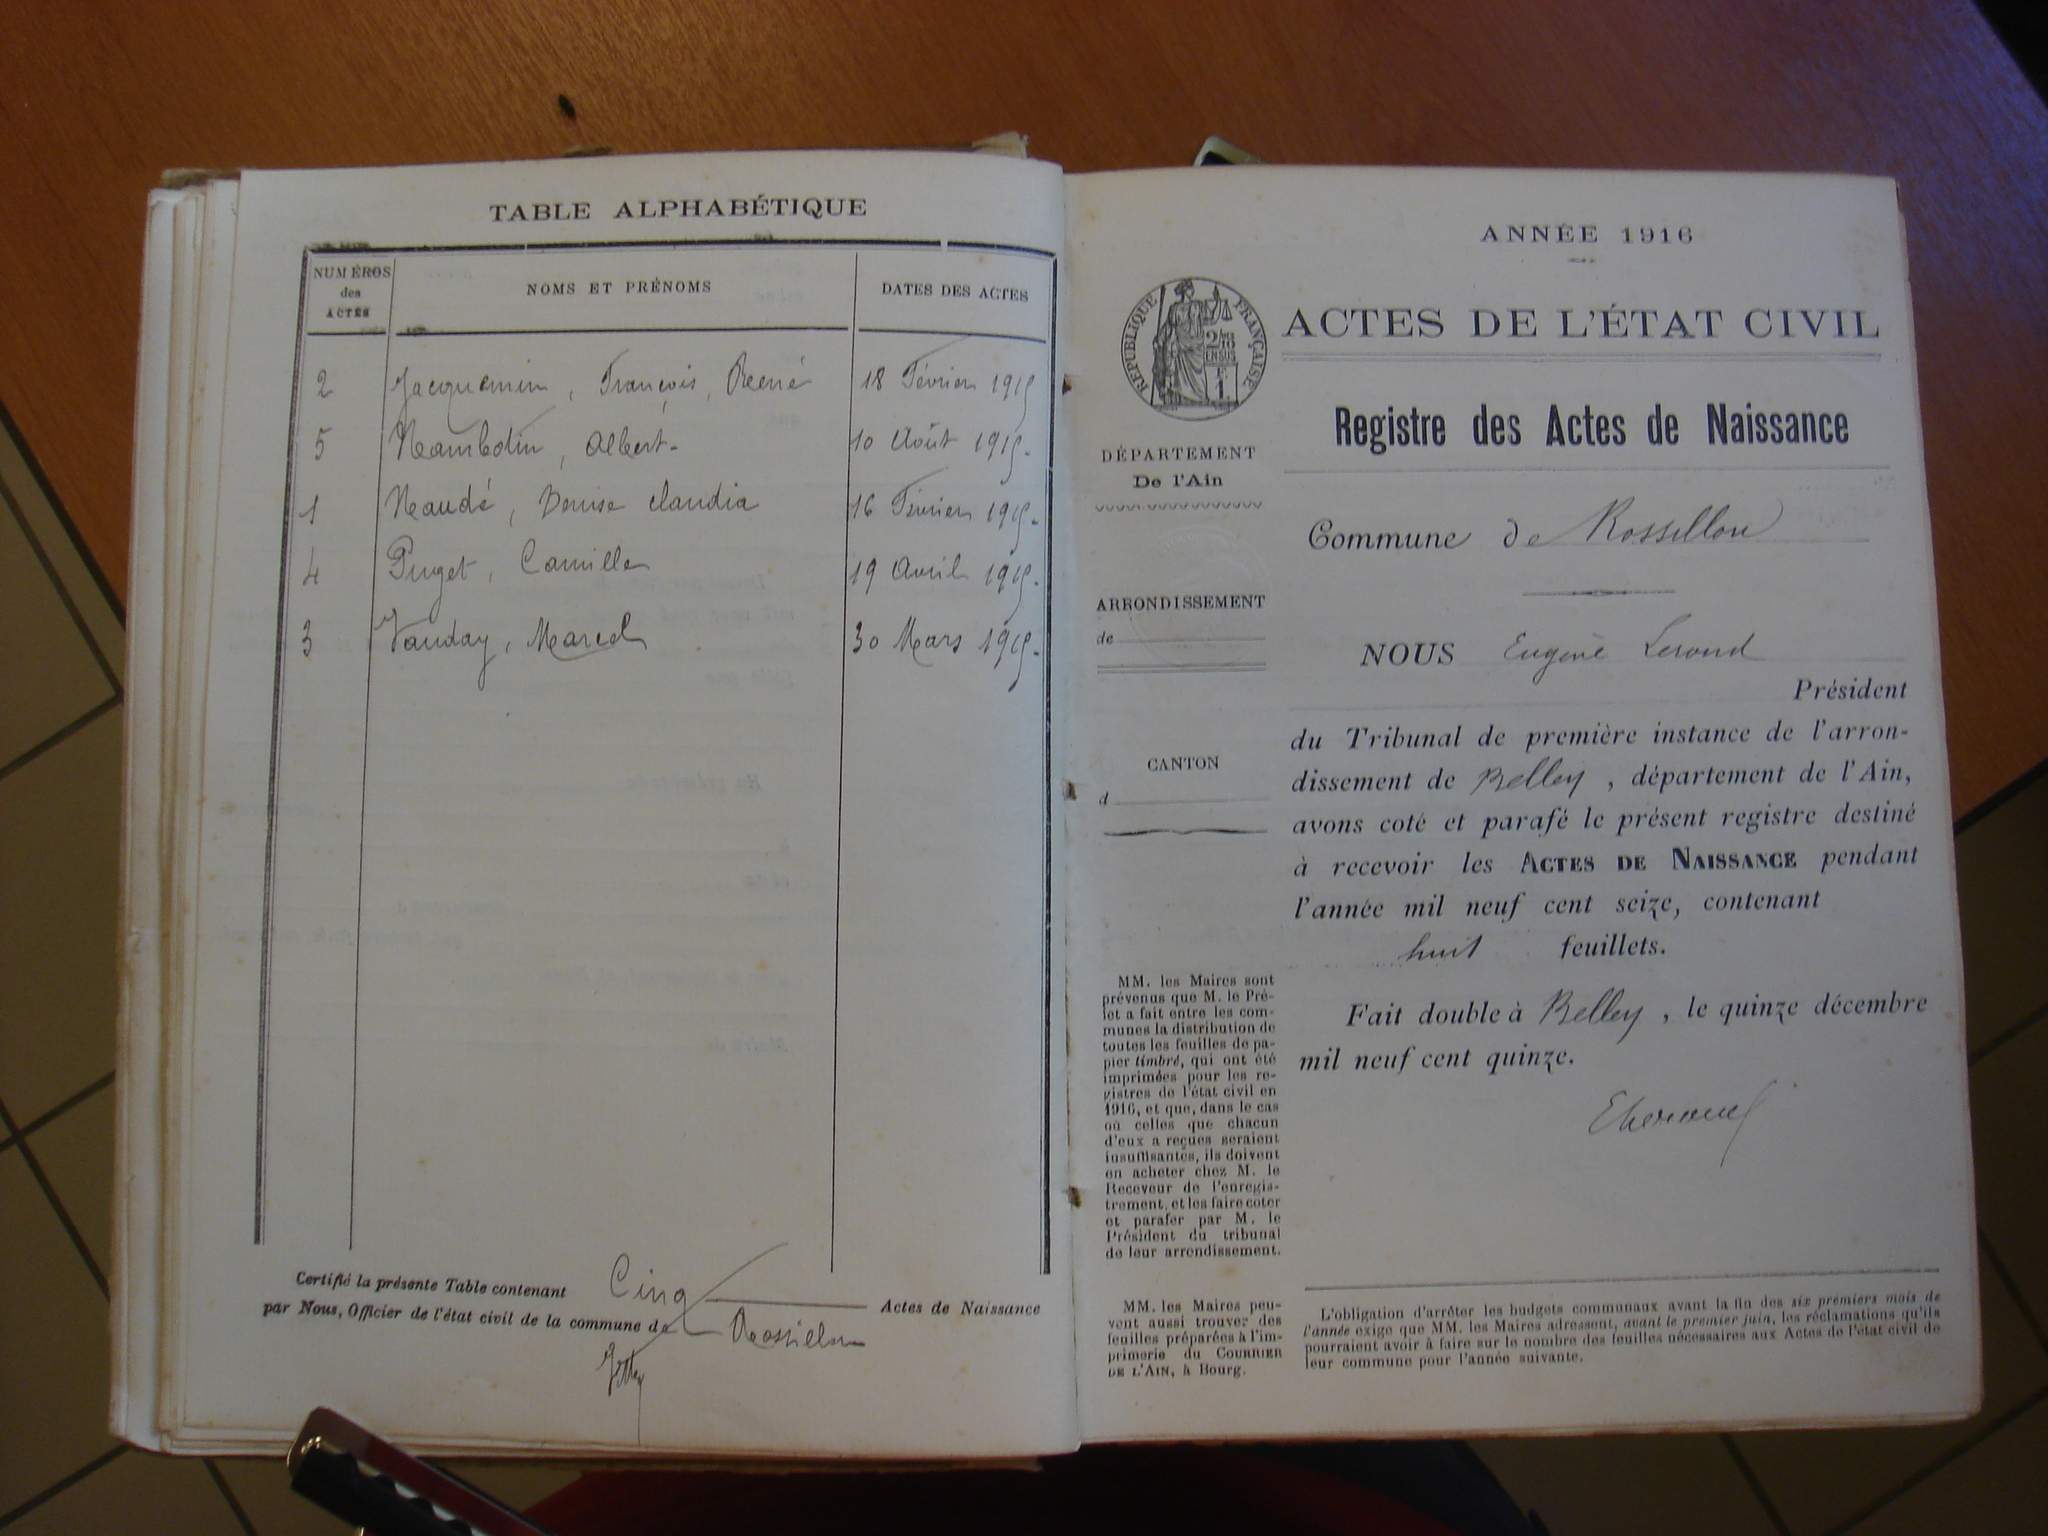 TABLE ALPHABÉTIQUE
NUMÉROS des ACTES
NOMS ET PRÉNOMS
DATES DES ACTES
2 Jacquemin, François, René 18 Février 1915
5 Mambotin, Albert 10 Août 1915
1 Maudé, Denise Claudia 16 Février 1915
4 Puget, Camille 19 Avril 1915
3 Vauday, Marcel 30 Mars 1915
Certifié la présente Table contenant Cinq Actes de Naissance
par Nous, Officier de l'état civil de la commune de Rossillon
ANNÉE 1916
RÉPUBLIQUE FRANÇAISE
ACTES DE L'ÉTAT CIVIL
Registre des Actes de Naissance
DÉPARTEMENT
De l'Ain
Commune de Rossillon
ARRONDISSEMENT
de
NOUS Eugène
Président
du Tribunal de première instance de l'arron-
dissement de Belley, département de l'Ain,
avons coté et parafé le présent registre destiné
à recevoir les ACTES DE NAISSANCE pendant
l'année mil neuf cent seize, contenant
huit feuillets.
Fait double à Belley, le quinze décembre
mil neuf cent quinze.
CANTON
d
MM. les Maires sont
prévenus que M. le Pré-
fet a fait entre les com-
munes la distribution de
toutes les feuilles de pa-
pier timbré, qui ont été
imprimées pour les re-
gistres de l'état civil en
1916, et que, dans le cas
où celles que chacun
d'eux a reçues seraient
insuffisantes, ils doivent
en acheter chez M. le
Receveur de l'enregis-
trement, et les faire coter
et parafer par M. le
Président du tribunal
de leur arrondissement.
MM. les Maires peu-
vent aussi trouver des
feuilles préparées à l'im-
primerie du COURRIER
DE L'AIN, à Bourg.
L'obligation d'arrêter les budgets communaux avant la fin des six premiers mois de
l'année exige que MM. les Maires adressent, avant le premier juin, les réclamations qu'ils
pourraient avoir à faire sur le nombre des feuilles nécessaires aux Actes de l'état civil de
leur commune pour l'année suivante.